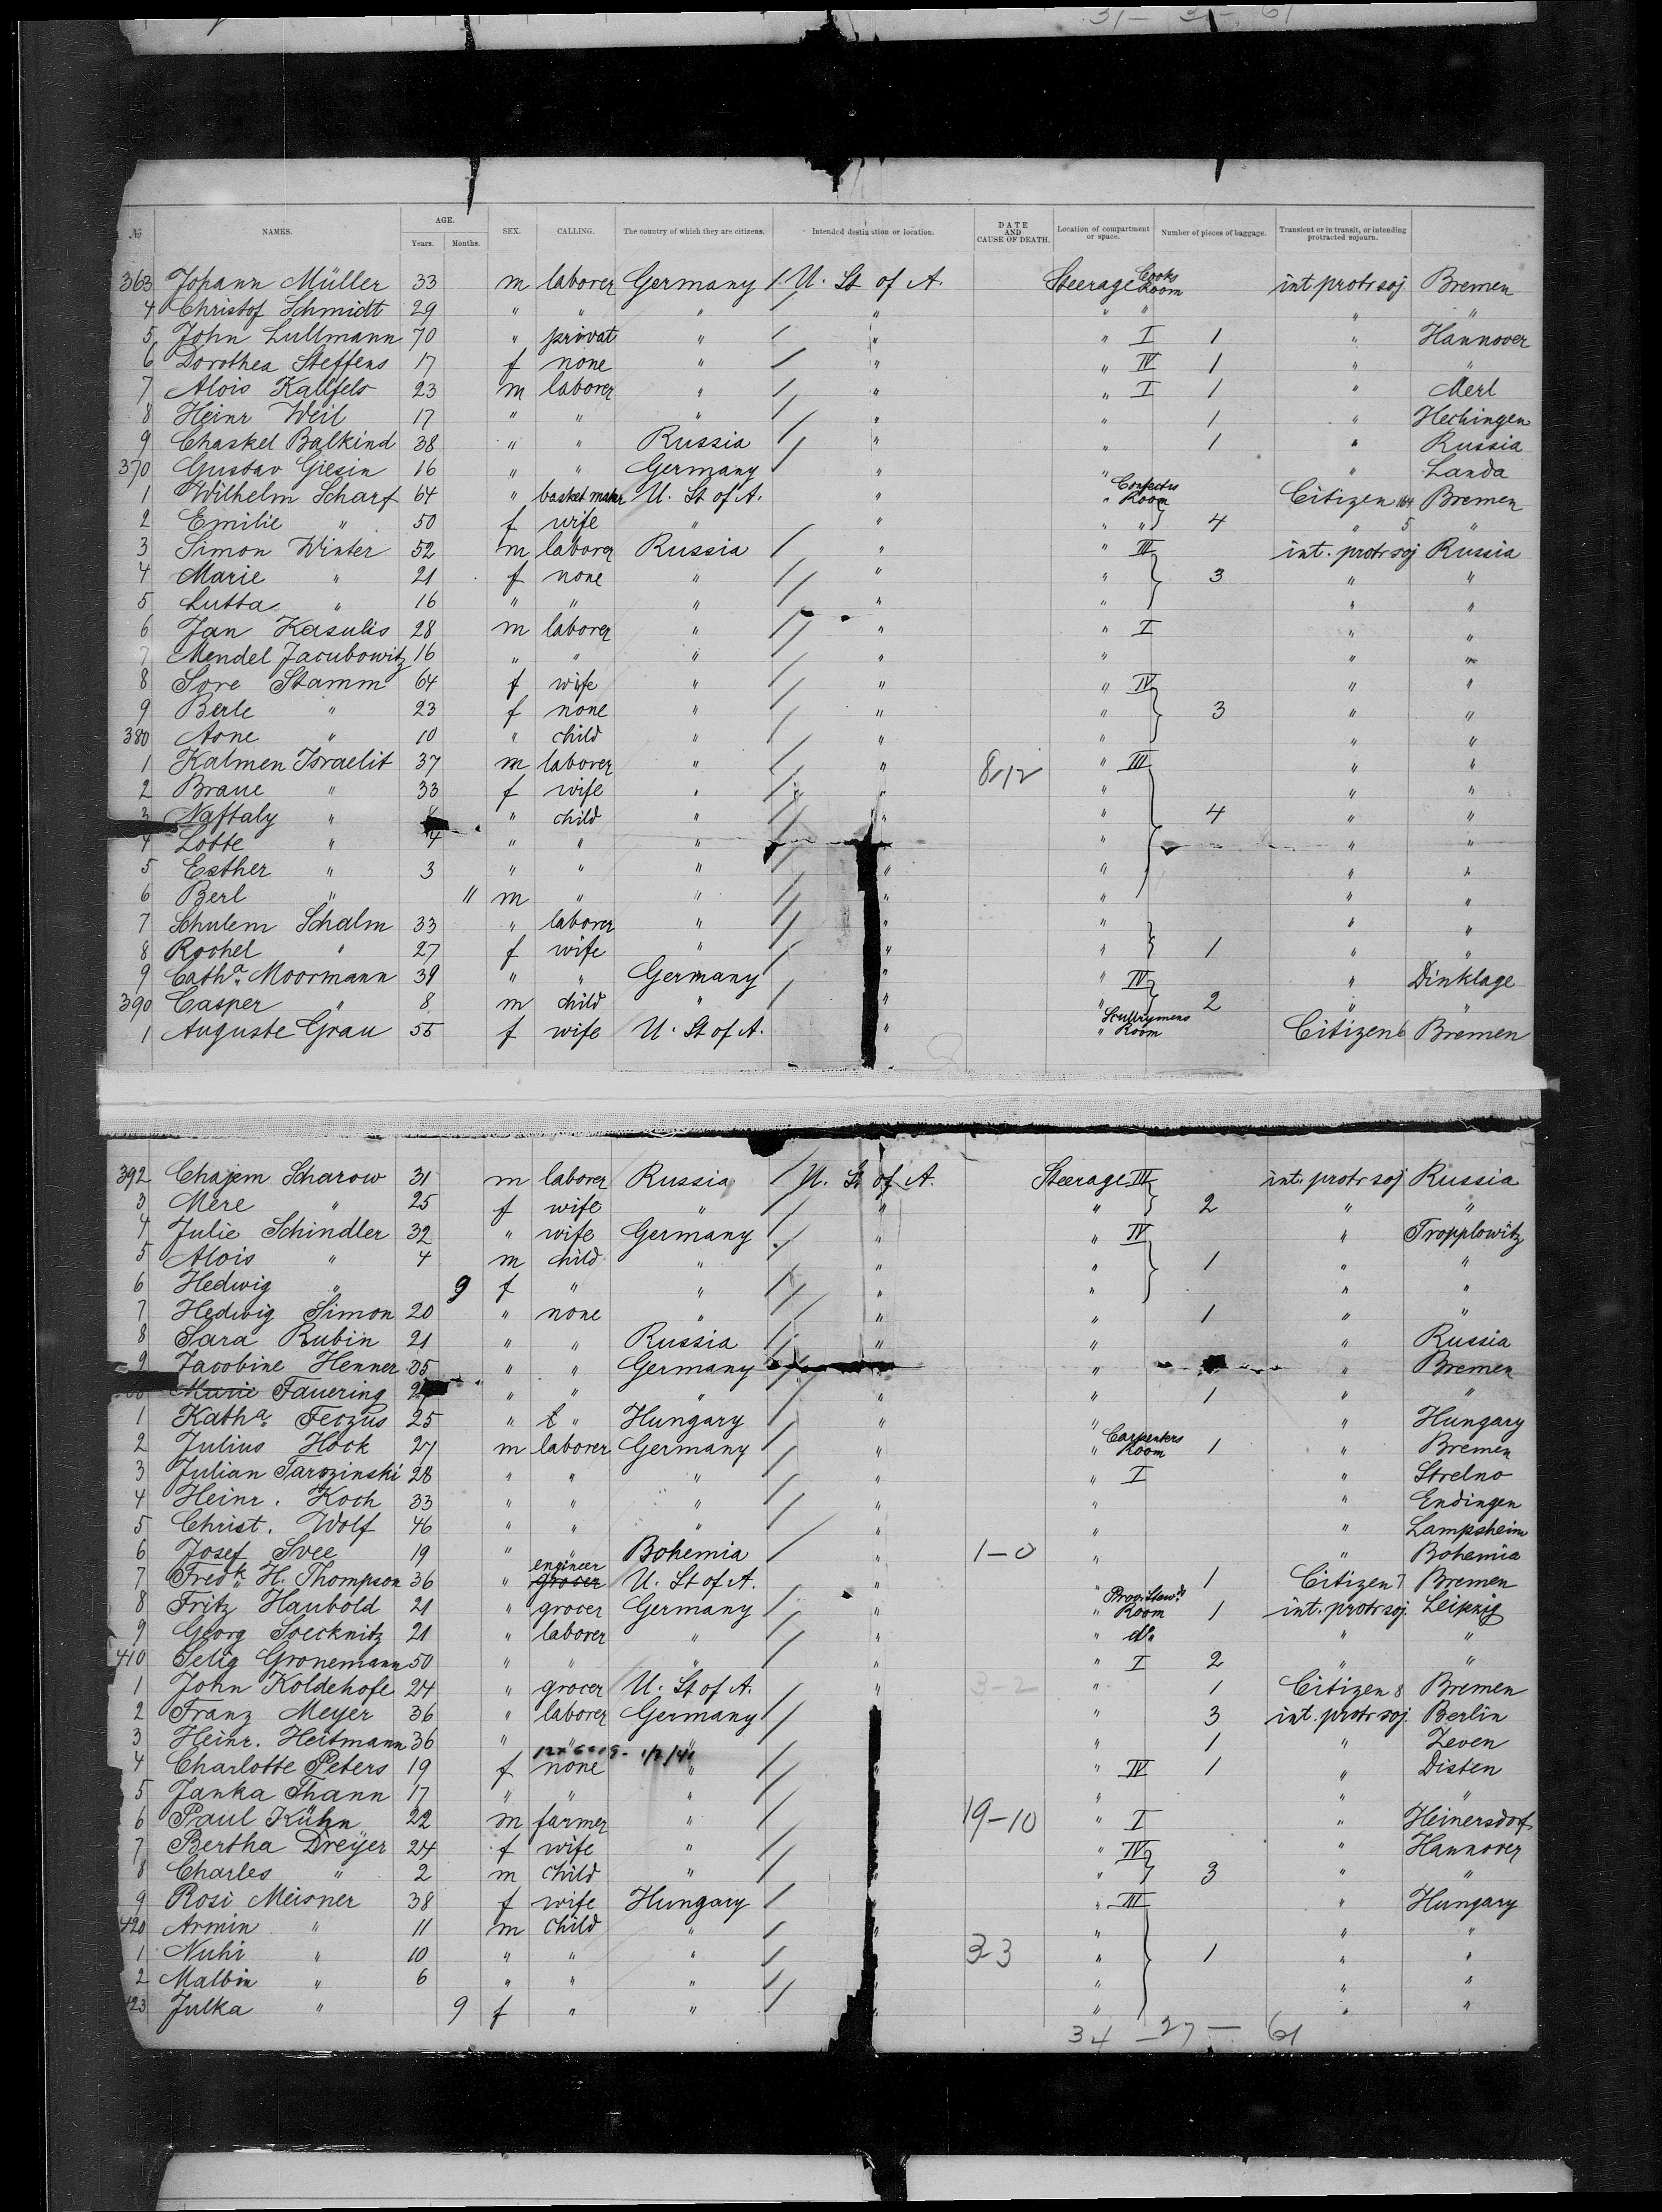 31 – 3 –, 61
№ NAMES. AGE. Years. Months. SEX. CALLING. The country of which they are citizens. Intended destination or location. DATE AND CAUSE OF DEATH. Location of compartment or space. Number of pieces of baggage. Transient or in transit, or intending protracted sojourn.
363 Johann Müller 33 m laborer Germany / U. St of A. Steerage Cooks Room int protr soj Bremen
4 Christof Schmidt 29 " " " / " " " " "
5 John Lullmann 70 " privat " / " " I 1 " Hannover
6 Dorothea Steffens 17 f none " / " " IV 1 " "
7 Alois Kallfels 23 m laborer " / " " I 1 " Merl
8 Heinr Weil 17 " " " / " " 1 " Hechingen
9 Chaskel Balkind 38 " " Russia / " " 1 " Russia
370 Gustav Giesin 16 " " Germany " " " Landa
1 Wilhelm Scharf 64 " basket maker U. St of A. " Room Citizen 164 Bremen
2 Emilie " 50 f wife " " " " 4 " 5 "
3 Simon Winter 52 m laborer Russia / " " III int. protr soj Russia
4 Marie " 21 f none " / " " 3 " "
5 Lutta " 16 " " " / " " " "
6 Jan Kasulis 28 m laborer " / " " I " "
7 Mendel Jacubowitz 16 " " " / " " " "
8 Sore Stamm 64 f wife " / " " IV " "
9 Berle " 23 f none " / " " 3 " "
380 Aone " 10 " child " / " " " "
1 Kalmen Israelit 37 m laborer " / " 8-12 " III " "
2 Braue " 33 f wife " / " " " "
3 Naftaly " " child " / " " 4 " "
4 Lotte " 4 " " " / " " " "
5 Esther " 3 " " " / " " " "
6 Berl " 11 m " " / " " " "
7 Schulem Schalm 33 " laborer " / " " " "
8 Rochel " 27 f wife " / " " 1 " "
9 Catha. Moormann 39 " " Germany / " " IV " Dinklage
390 Casper " 8 m child " / " " 2 " "
1 Auguste Grau 55 f wife U. St of A. " " Scullrymens Room Citizen 6 Bremen
392 Chajem Scharow 31 m laborer Russia / U. St of A. Steerage III int. protr soj Russia
3 Mere " 25 f wife " / " " 2 " "
4 Julie Schindler 32 " wife Germany / " " IV " Tropplowitz
5 Alois " 4 m child " / " " 1 " "
6 Hedwig " 9 f " " / " " " "
7 Hedwig Simon 20 " none " / " " 1 " "
8 Sara Rubin 21 " " Russia / " " " Russia
9 Jacobine Henner 35 " " Germany / " " " Bremen
Marie Fauering " " " / " " 1 " "
1 Katha. Feczus 25 " " Hungary / " " " Hungary
2 Julius Hock 27 m laborer Germany / " " Carpenters Room 1 " Bremen
3 Julian Tarozinski 28 " " " / " " I " Strelno
4 Heinr. Koch 33 " " " / " " " Endingen
5 Christ. Wolf 46 " " " / " " " Lampsheim
6 Josef Svec 19 " " Bohemia / " 1-0 " " Bohemia
7 Fredk H. Thompson 36 " grocer engineer U. St of A. " " 1 Citizen 7 Bremen
8 Fritz Haubold 21 " grocer Germany / " " Prov. Stewds Room 1 int. protr soj. Leipzig
9 Georg Soecknitz 21 " laborer " / " " do " "
410 Selig Gronemann 50 " " " / " " I 2 " "
1 John Koldehofe 24 " grocer U. St of A. " 3-2 " 1 Citizen 8 Bremen
2 Franz Meyer 36 " laborer Germany / " " 3 int. protr soj. Berlin
3 Heinr. Heitmann 36 " " " / " " 1 " Zeven
4 Charlotte Peters 19 f none " / " " IV 1 " Disten
5 Janka Thann 17 " " " / " " " "
6 Paul Kühn 22 m farmer " / " 19-10 " I " Heinersdorf
7 Bertha Dreyer 24 f wife " / " " IV " Hannover
8 Charles " 2 m child " / " " 3 " "
9 Rosi Meisner 38 f wife Hungary / " " III " Hungary
420 Armin " 11 m child " / " " " "
1 Nuhi " 10 " " " / " 3-3 " 1 " "
2 Malbin " 6 " " " / " " " "
423 Julka " 9 f " " / " " " "
34 – 27 – 61